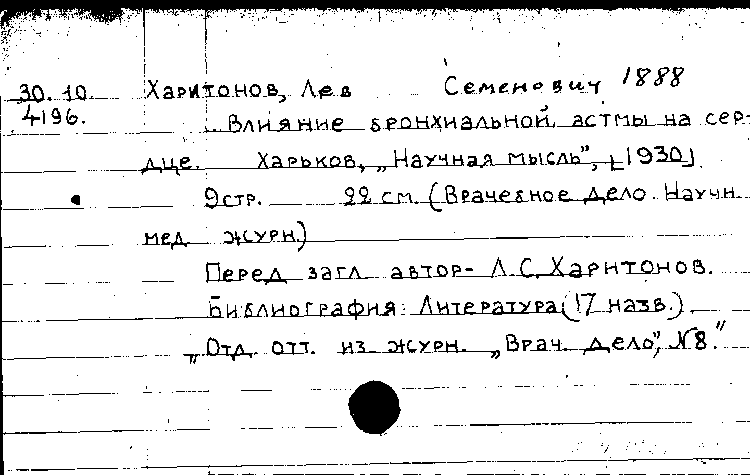 30.10. Харитонов, Лев Семенович 1888
4196. Влияние бронхиальной астмы на сер-
дце. Харьков, „Научная мысль", [1930]
9стр. 22 см. (Врачебное дело. Научн.
мед. журн.)
Перед загл. автор- Л.С. Харитонов.
Библиография: Литература (17 назв.).
„Отд. отт. из журн. „Врач. дело", №8."